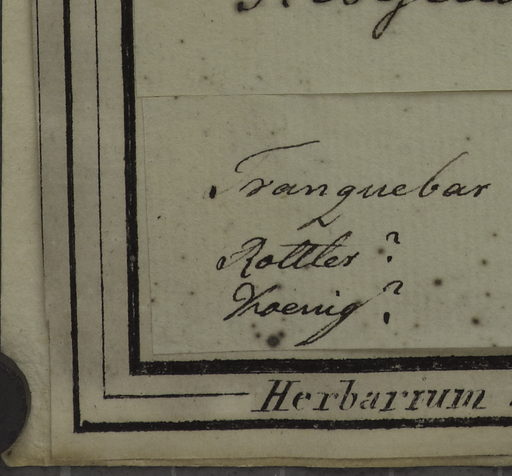 Tranquebar
Rottler ?
Koenig ?
Herbarium